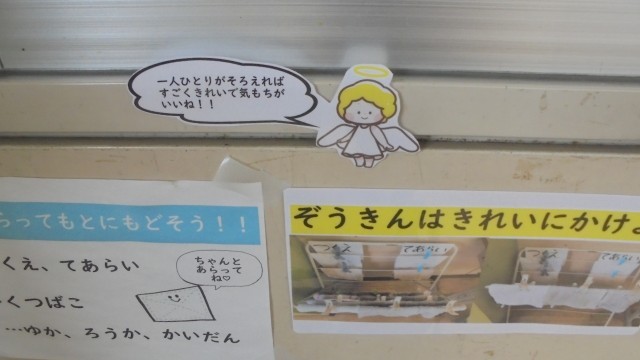 一人ひとりがそろえれば
すごくきれいで気もちが
いいね！！
らってもとにもどそう！！
くえ、てあらい
ちゃんと
あらって
ね♡
くつばこ
…ゆか、ろうか、かいだん
ぞうきんはきれいにかけよ
つくえ
てあらい
つくえ
てあらい